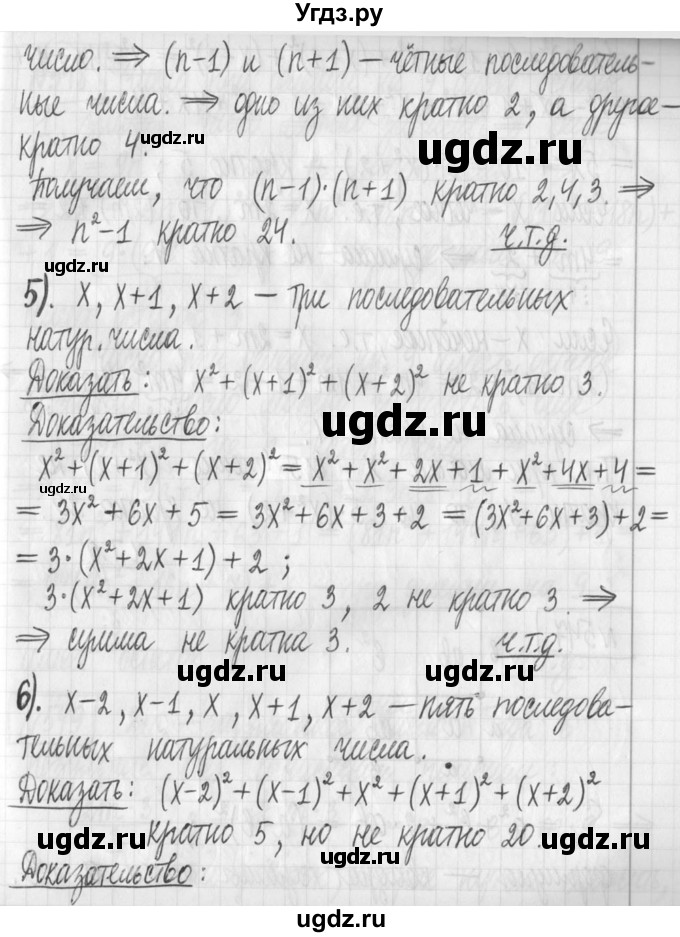 Угдз.ру
число. ⇒ (n-1) и (n+1) – чётные последователь-
ные числа. ⇒ одно из них кратно 2, а другое –
кратно 4.
Получаем, что (n-1)·(n+1) кратно 2,4,3. ⇒
⇒ n²-1 кратно 24. ч.т.д.
5). x, x+1, x+2 – три последовательных
натур. числа.
Доказать: x²+(x+1)²+(x+2)² не кратно 3.
Доказательство:
x²+(x+1)²+(x+2)² = x²+x²+2x+1+x²+4x+4 =
= 3x²+6x+5 = 3x²+6x+3+2 = (3x²+6x+3)+2 =
= 3·(x²+2x+1)+2 ;
3·(x²+2x+1) кратно 3, 2 не кратно 3. ⇒
⇒ сумма не кратна 3. ч.т.д.
6). x-2, x-1, x, x+1, x+2 – пять последова-
тельных натуральных числа.
Доказать: (x-2)²+(x-1)²+x²+(x+1)²+(x+2)²
кратно 5, но не кратно 20.
Доказательство:
ugdz.ru
ugdz.ru
ugdz.ru
ugdz.ru
ugdz.ru
ugdz.ru
ugdz.ru
ugdz.ru
ugdz.ru
ugdz.ru
ugdz.ru
ugdz.ru
ugdz.ru